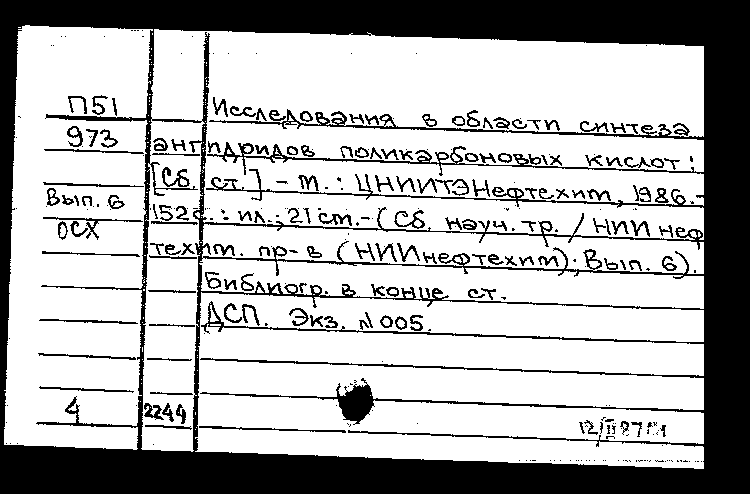 П51
973
Вып. 6
ОСХ
Исследования в области синтеза
ангидридов поликарбоновых кислот:
[Сб. ст.] - М.: ЦНИИТЭнефтехим, 1986.-
152с. : ил.; 21 см. - (Сб. науч. тр. / НИИ неф
техим. пр-в (НИИнефтехим); Вып. 6).
Библиогр. в конце ст.
ДСП. Экз. N 005.
4 2244
12/II 87